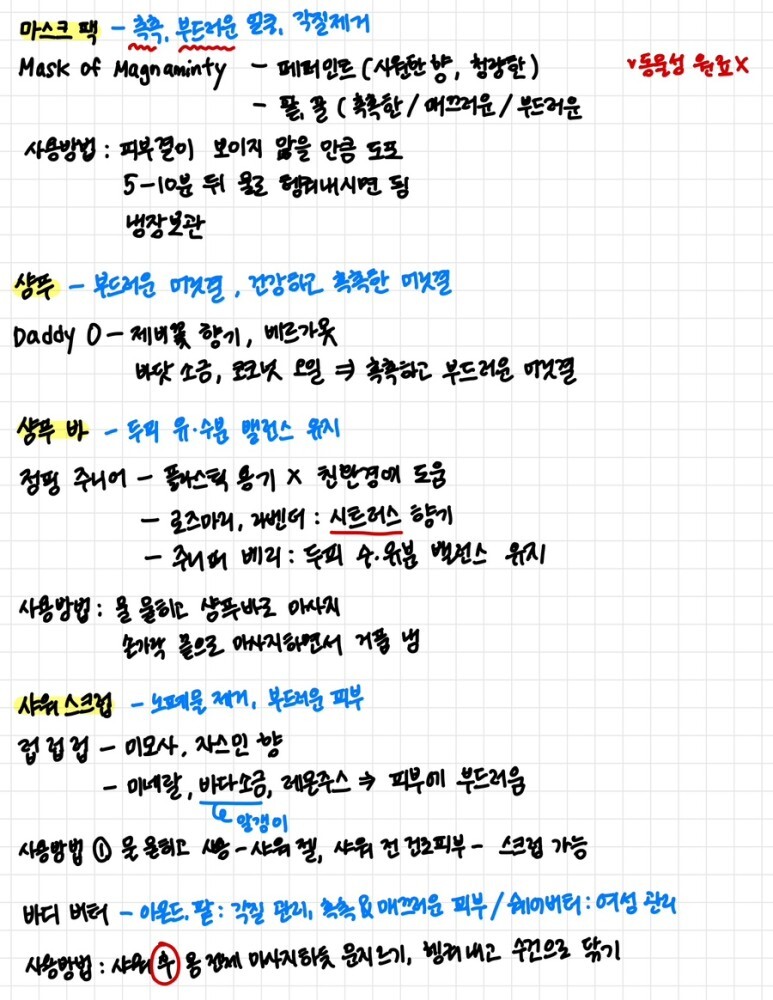 마스크 팩 - 촉촉, 부드러운 얼굴, 각질제거
Mask of Magnaminty - 페퍼민트 (시원한 향, 청량한) v동물성 원료 X
- 팥, 꿀 (촉촉한 / 매끄러운 / 부드러운
사용방법 : 피부결이 보이지 않을 만큼 도포
5-10분 뒤 물로 헹궈내시면 됨
냉장보관
샴푸 - 부드러운 머릿결, 건강하고 촉촉한 머릿결
Daddy O - 제비꽃 향기, 베르가못
바닷 소금, 코코넛 오일 ⇒ 촉촉하고 부드러운 머릿결
샴푸 바 - 두피 유·수분 밸런스 유지
점핑 주니어 - 플라스틱 용기 X 친환경에 도움
- 로즈마리, 라벤더 : 시트러스 향기
- 주니퍼 베리 : 두피 수·유분 밸런스 유지
사용방법 : 물 묻히고 샴푸바로 마사지
손가락 끝으로 마사지하면서 거품 냄
샤워 스크럽 - 노폐물 제거, 부드러운 피부
럽 럽 럽 - 미모사, 자스민 향
- 미네랄, 바다소금, 레몬주스 ⇒ 피부에 부드러움
알갱이
사용방법 ① 물 묻히고 사용 - 샤워 젤, 샤워 전 건조피부 - 스크럽 가능
바디 버터 - 아몬드, 팥 : 각질 관리, 촉촉 & 매끄러운 피부 / 쉐어버터 : 여성 관리
사용방법 : 샤워 후 몸 전체 마사지하듯 문지르기, 헹궈내고 수건으로 닦기